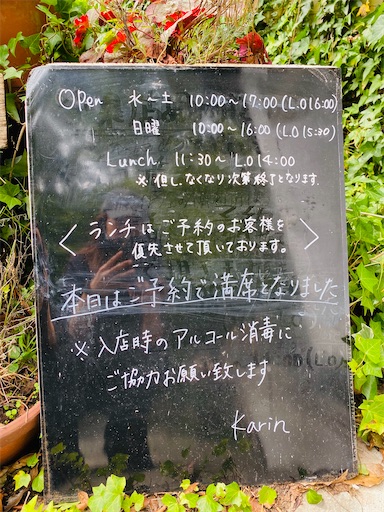 Open 水〜土 10:00〜17:00(L.O16:00)
日曜 10:00〜16:00(L.O15:30)
Lunch 11:30〜L.O14:00
※但し、なくなり次第終了となります.
〈ランチはご予約のお客様を
優先させて頂いております。〉
本日はご予約で満席となりました
※入店時のアルコール消毒に
ご協力お願い致します
Karin